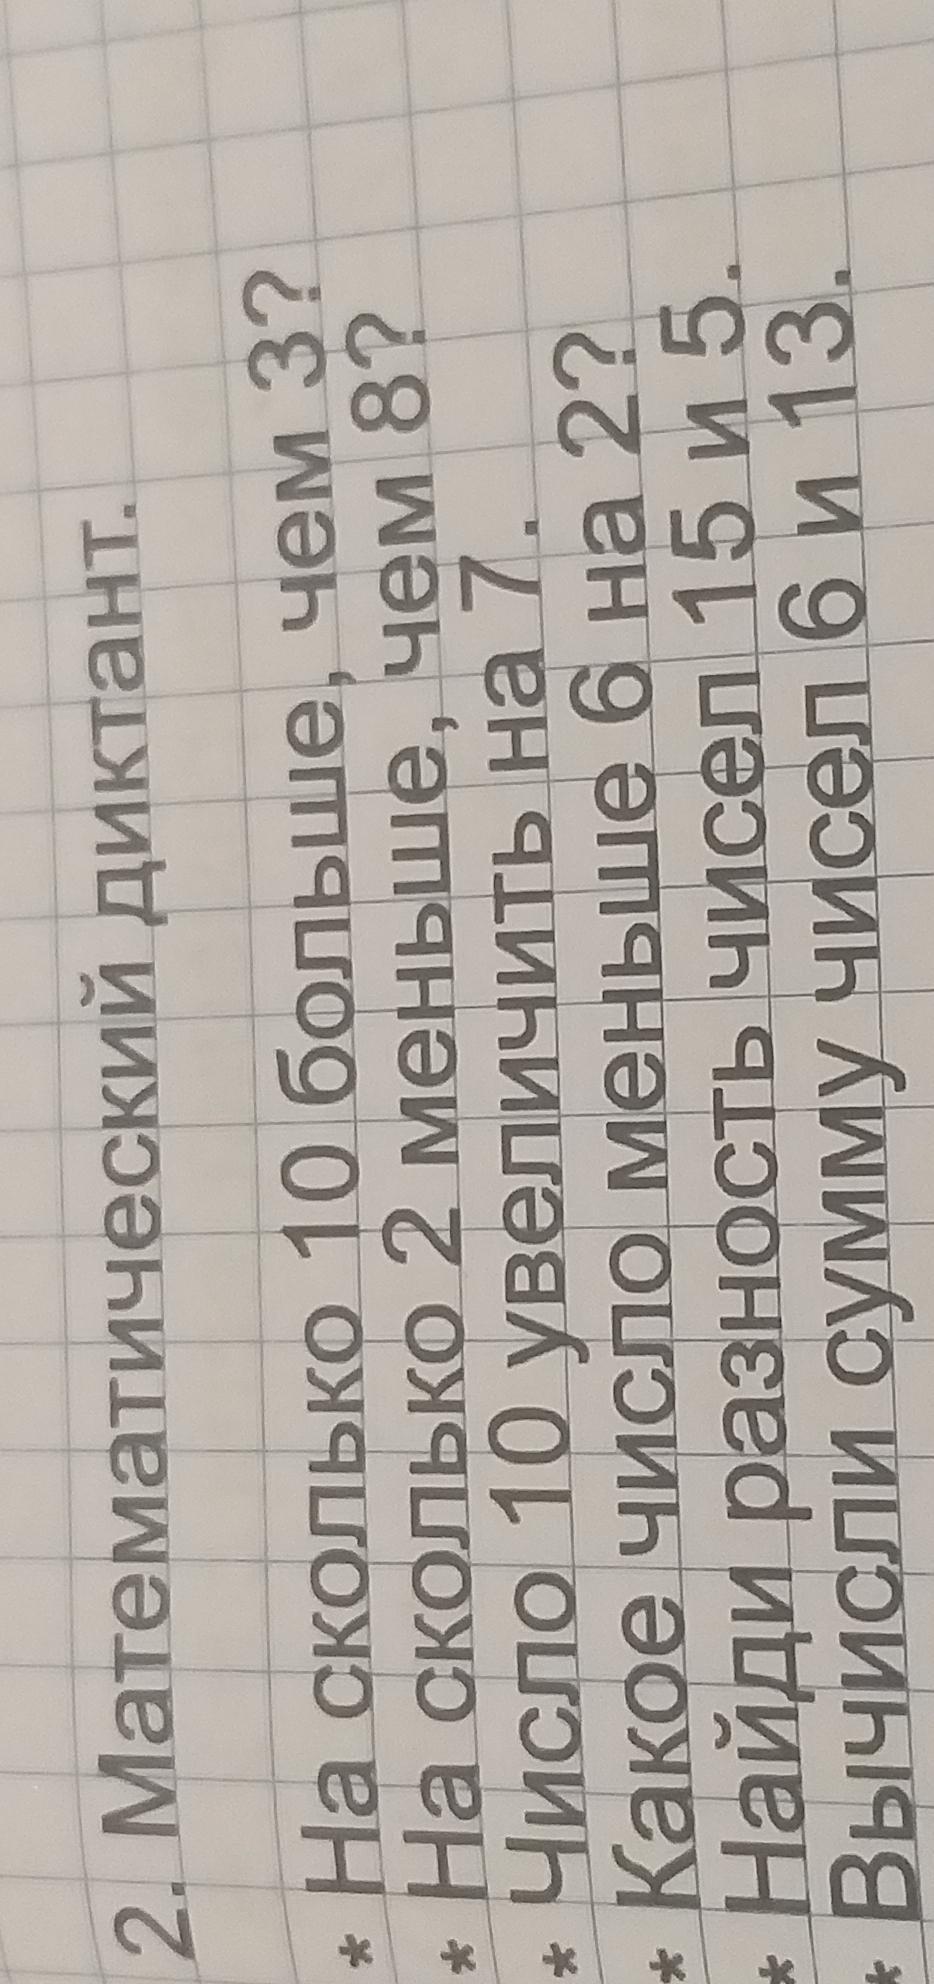 2. Математический диктант.
* На сколько 10 больше, чем 3?
* На сколько 2 меньше, чем 8?
* Число 10 увеличить на 7.
* Какое число меньше 6 на 2?
* Найди разность чисел 15 и 5.
* Вычисли сумму чисел 6 и 13.